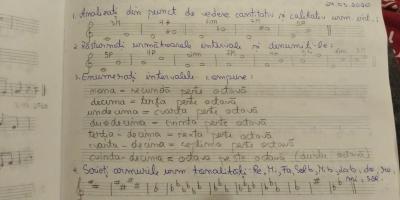 24.03.2020
1. Analizați din punct de vedere cantitativ și calitativ urm. int.:
3M 4+
2. Răsturnați următoarele intervale și denumiți-le:
5P
3. Enumerați intervalele compuse:
nona = secundă peste octavă
decima = terța peste octavă
undecima = cvarta peste octavă
duodecima = cvinta peste octavă
terța-decima = sexta peste octavă
cvarta-decima = septima peste octavă
cvinta-decima = octava peste octavă (dubla octavă)
4. Scrieți armurile urm tonalități: Re, Mi, Fa, Solb, Mib, lab, do, re,
mi, sol.